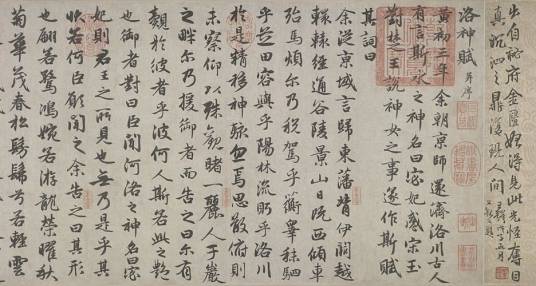 出自秘府金始得見此光怪奪目
真汎泗之鼎復現人間
洛神賦 并序
黃初三年余朝京師還濟洛川古人
有言斯水之神名曰宓妃感宋玉
對楚王說神女之事遂作斯賦
其詞曰
余從京域言歸東藩背伊闕越
轘轅經通谷陵景山日既西傾車
殆馬煩尔乃稅駕乎蘅皋秣駟
乎芝田容與乎陽林流眄乎洛川
於是精移神駭忽焉思散俯則
未察仰以殊觀睹一麗人于巖
之畔尔乃援御者而告之曰尔有
覿於彼者乎彼何人斯若此之豔
也御者對曰臣聞河洛之神名曰宓
妃則君王之所見也無乃是乎其
狀若何臣願聞之余告之曰其形
也翩若驚鴻婉若游龍榮曜秋
菊華茂春松髣髴兮若輕雲